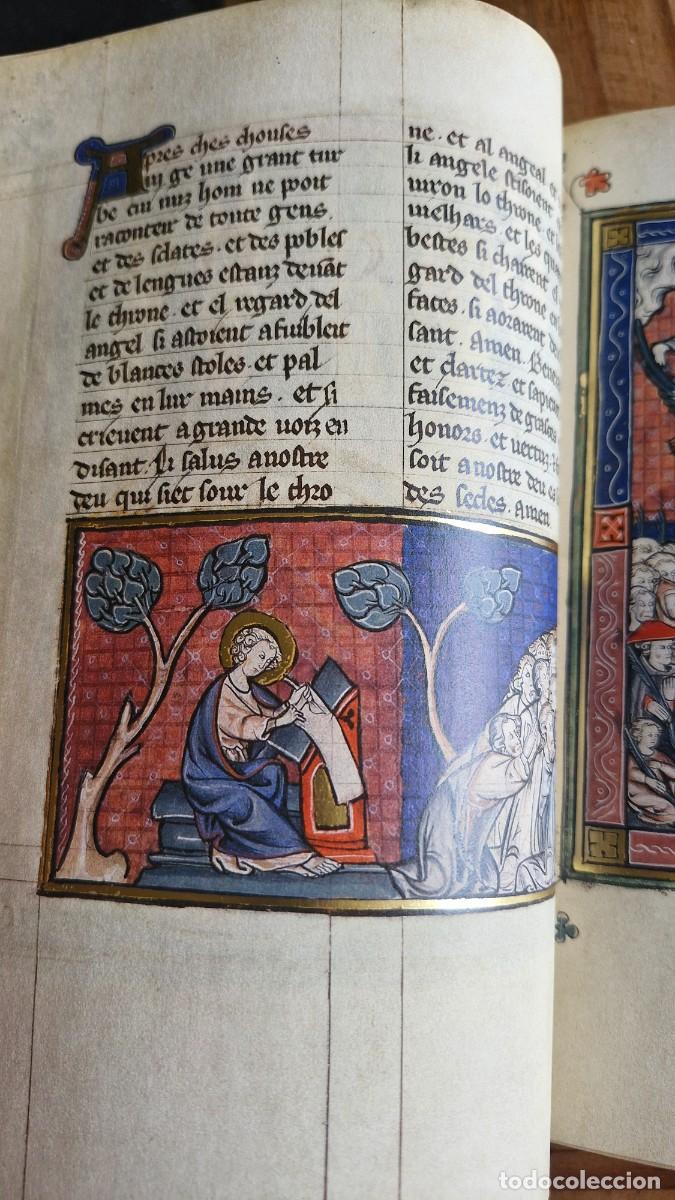 Apres ches chouses
vi ge une grant tur
be cui nuz hom ne poit
raconteir de toute gens.
et des sclates. et des pobles
et de lengues estanz devant
le throne. et el regard del
angel si astoient afubleit
de blances stoles. et pal
mes en lur mains. et si
crievent a grande voiz en
disant. Li salus a nostre
deu qui siet sour le thro
ne. et al angeal et
li angele stisoient
viron lo throne. et
melhars. et les
bestes si chairent e
gard del throne en
faces. si aorarent d
sant. amen. Bene
et clartez et sapien
faisemenz de grasces
honors. et vertuz.
soit a nostre deu es
des secles. amen
todocoleccion